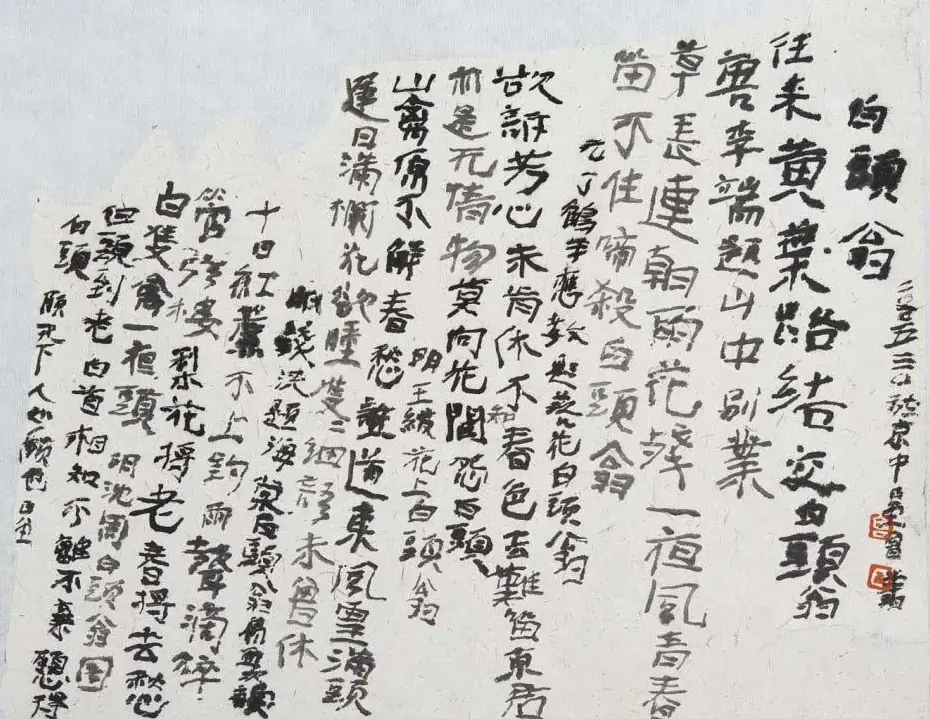 白頭翁
往來黄葉路結交白頭翁
唐李端題山中别業
草長連朝雨花殘一夜風青春
留不住啼殺白頭翁
元丁鶴年應教題落花白頭翁
欲訴芳心未肯休不和春色去難留東君
於是无情物莫向花間怨白頭
明王紱花上白頭翁
山禽原不解春愁誰道東風雪滿頭
遲日滿欄花欲睡雙雙細語未曾休
海棠白頭翁
十日紅簾不上鈎雨聲滴碎
管弦樓梨花將老春將去愁
白雙禽一夜頭
明沈周白頭翁图
但願到老白首相知不離不棄願得
白頭
願天下人如願也